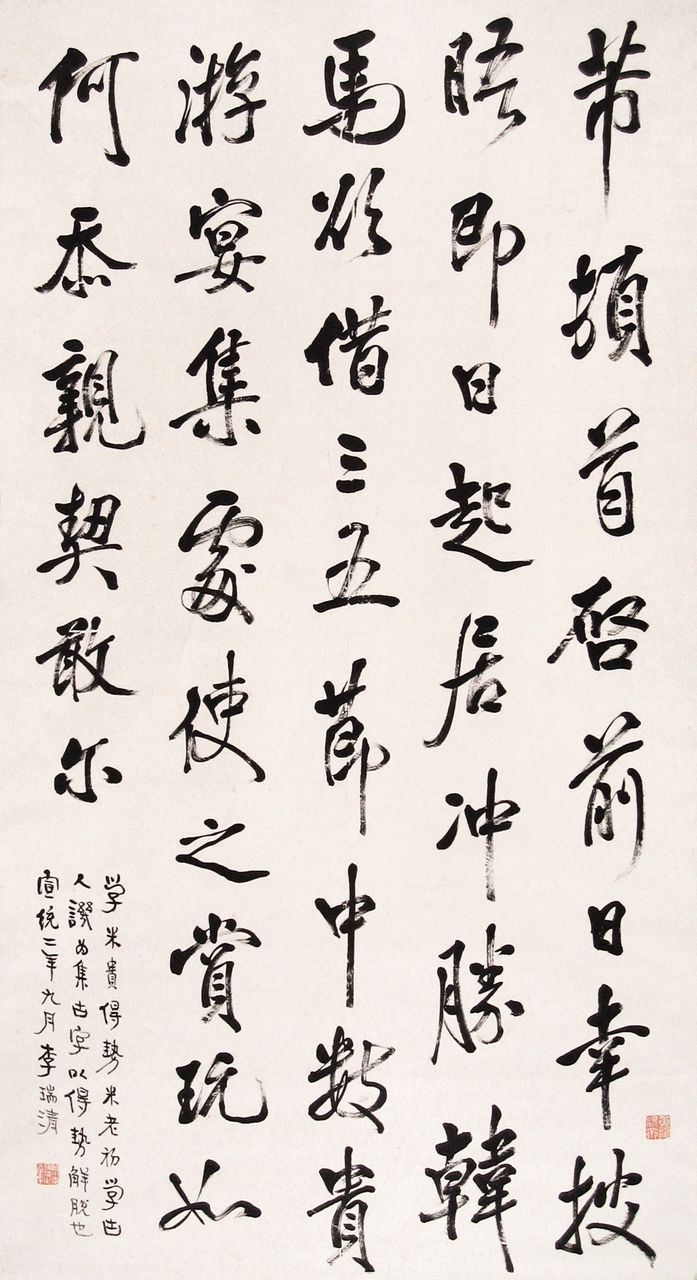 芾頓首啓前日幸披
晤即日起居冲勝韓
馬欲借三五節中數貴
游宴集處使之賞玩如
何忝親契敢尔
学米貴得勢米老初学古
人譏为集古字以得勢解脱也
宣統二年九月李瑞清